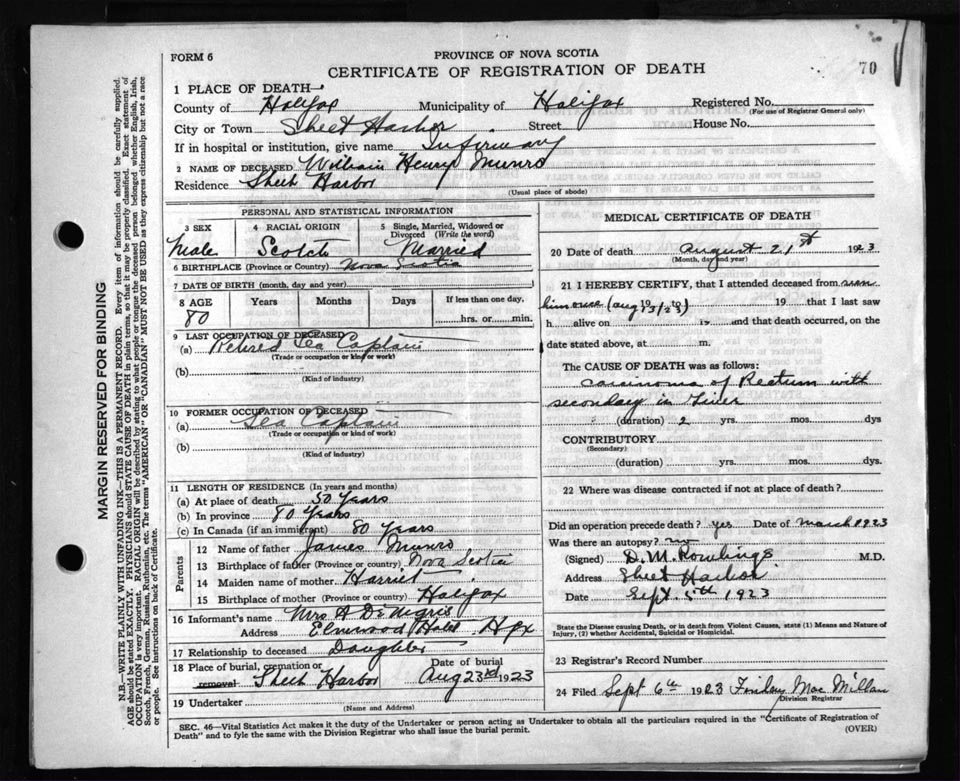 FORM 6
PROVINCE OF NOVA SCOTIA
CERTIFICATE OF REGISTRATION OF DEATH
70
1 PLACE OF DEATH—
County of Halifax Municipality of Halifax Registered No.
(For use of Registrar General only)
City or Town Sheet Harbor Street House No.
If in hospital or institution, give name Infirmary
2 NAME OF DECEASED William Henry Munro
Residence Sheet Harbor
(Usual place of abode)
PERSONAL AND STATISTICAL INFORMATION
3 SEX 4 RACIAL ORIGIN 5 Single, Married, Widowed or Divorced (Write the word)
Male Scotch Married
6 BIRTHPLACE (Province or Country) Nova Scotia
7 DATE OF BIRTH (month, day and year)
8 AGE Years Months Days If less than one day,
80 hrs. or min.
9 LAST OCCUPATION OF DECEASED
(a) Retired Sea Captain
(Trade or occupation or kind of work)
(b)
(Kind of industry)
10 FORMER OCCUPATION OF DECEASED
(a) Sea Captain
(Trade or occupation or kind of work)
(b)
(Kind of industry)
11 LENGTH OF RESIDENCE (In years and months)
(a) At place of death 50 Years
(b) In province 80 Years
(c) In Canada (if an immigrant) 80 Years
Parents
12 Name of father James Munro
13 Birthplace of father (Province or country) Nova Scotia
14 Maiden name of mother Harriet
15 Birthplace of mother (Province or country) Halifax
16 Informant's name Mrs A DeNegris
Address Elmwood Hotel Hfx
17 Relationship to deceased Daughter
18 Place of burial, cremation or removal Sheet Harbor
Date of burial Aug 23rd 1923
19 Undertaker
(Name and Address)
MEDICAL CERTIFICATE OF DEATH
20 Date of death August 21st 1923
(Month, day and year)
21 I HEREBY CERTIFY, that I attended deceased from seen
him once (aug 19 that I last saw
h alive on and that death occurred, on the
date stated above, at m.
The CAUSE OF DEATH was as follows:
Carcinoma of Rectum with
secondary in Liver
(duration) 2 yrs. mos. dys
CONTRIBUTORY
(Secondary)
(duration) yrs. mos. dys.
22 Where was disease contracted if not at place of death?
Did an operation precede death? yes Date of March 1923
Was there an autopsy? no
(Signed) D. M. Rowlings M.D.
Address Sheet Harbor
Date Sept. 5th 1923
State the Disease causing Death, or in death from Violent Causes, state (1) Means and Nature of
Injury, (2) whether Accidental, Suicidal or Homicidal.
23 Registrar's Record Number
24 Filed Sept 6th 1923 Finlay MacMillan
Division Registrar
SEC. 46—Vital Statistics Act makes it the duty of the Undertaker or person acting as Undertaker to obtain all the particulars required in the "Certificate of Registration of
Death" and to fyle the same with the Division Registrar who shall issue the burial permit. (OVER)
MARGIN RESERVED FOR BINDING
N.B.—WRITE PLAINLY WITH UNFADING INK—THIS IS A PERMANENT RECORD. Every item of information should be carefully supplied.
AGE should be stated EXACTLY. PHYSICIANS should STATE CAUSE OF DEATH in plain terms, so that it may be properly classified. Exact statement of
OCCUPATION is very important. RACIAL ORIGIN will be described by stating to what people or tongue the deceased person belonged whether English, Irish,
Scotch, French, German, Russian, Ruthenian, etc. The terms "AMERICAN" or "CANADIAN" MUST NOT BE USED as they express citizenship but not a race
or people. See instructions on back of Certificate.